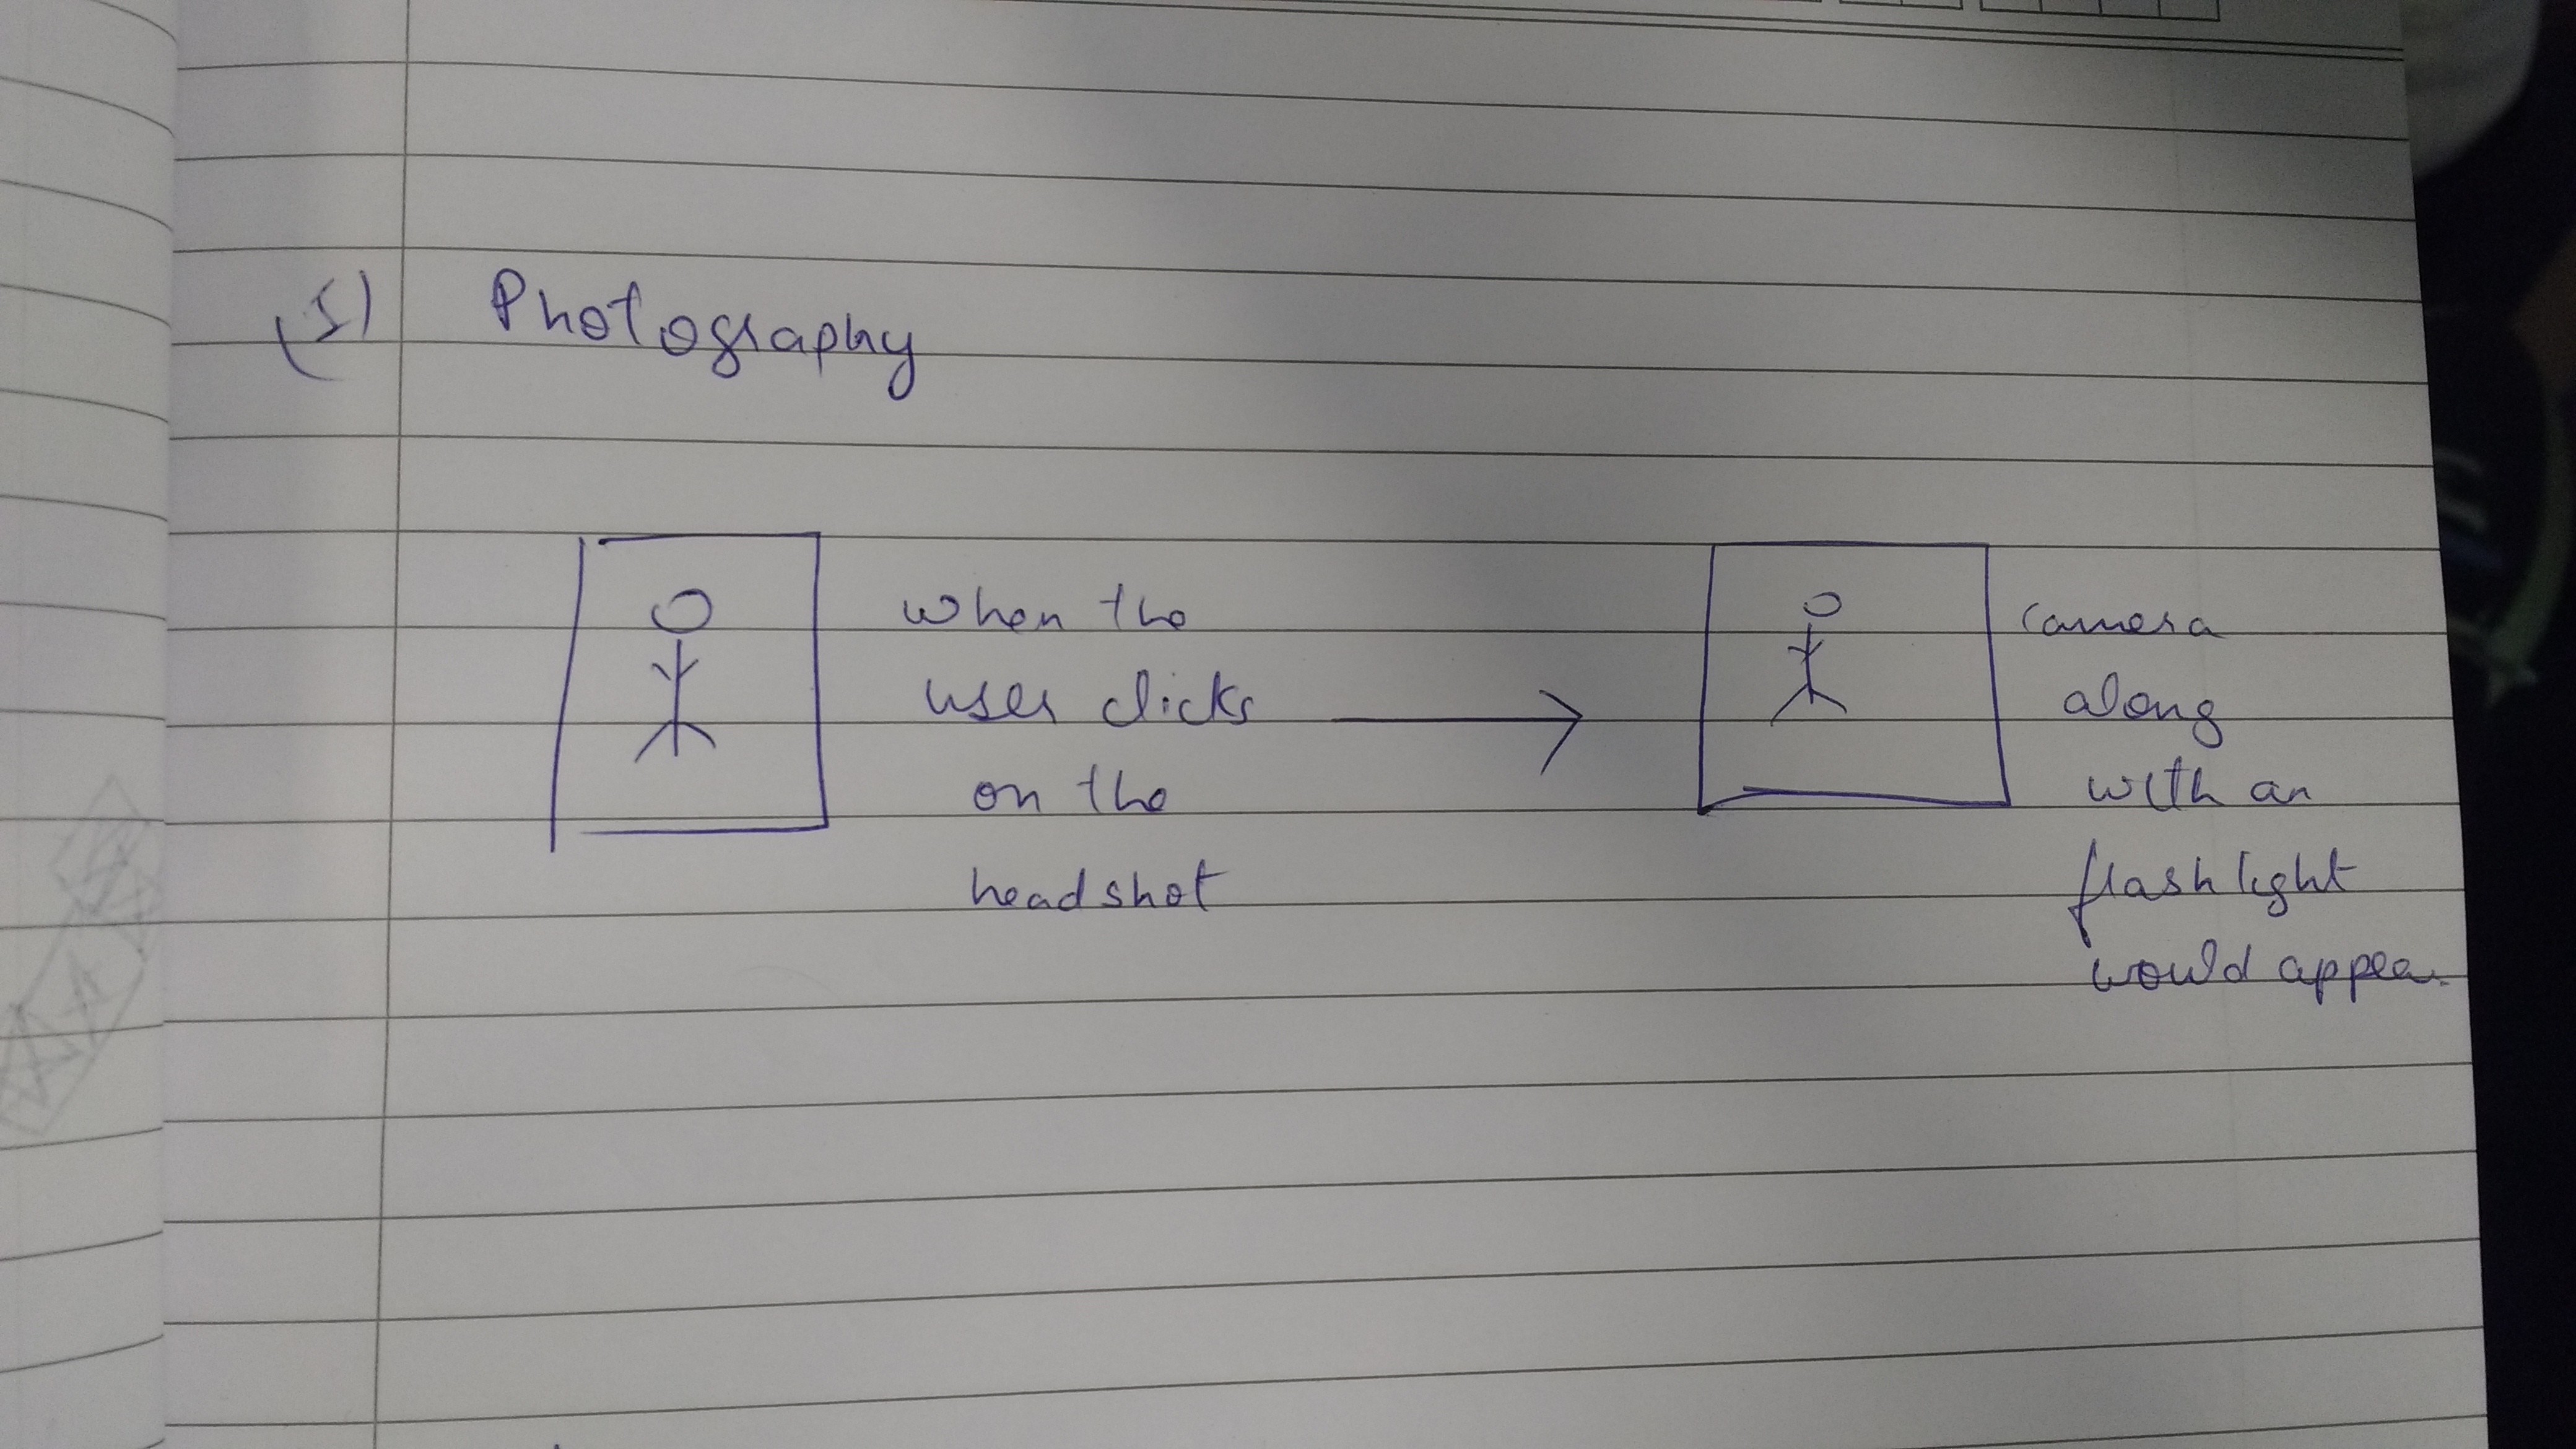 (1) Photography
when the
user clicks
on the
headshot
camera
along
with an
flashlight
would appear